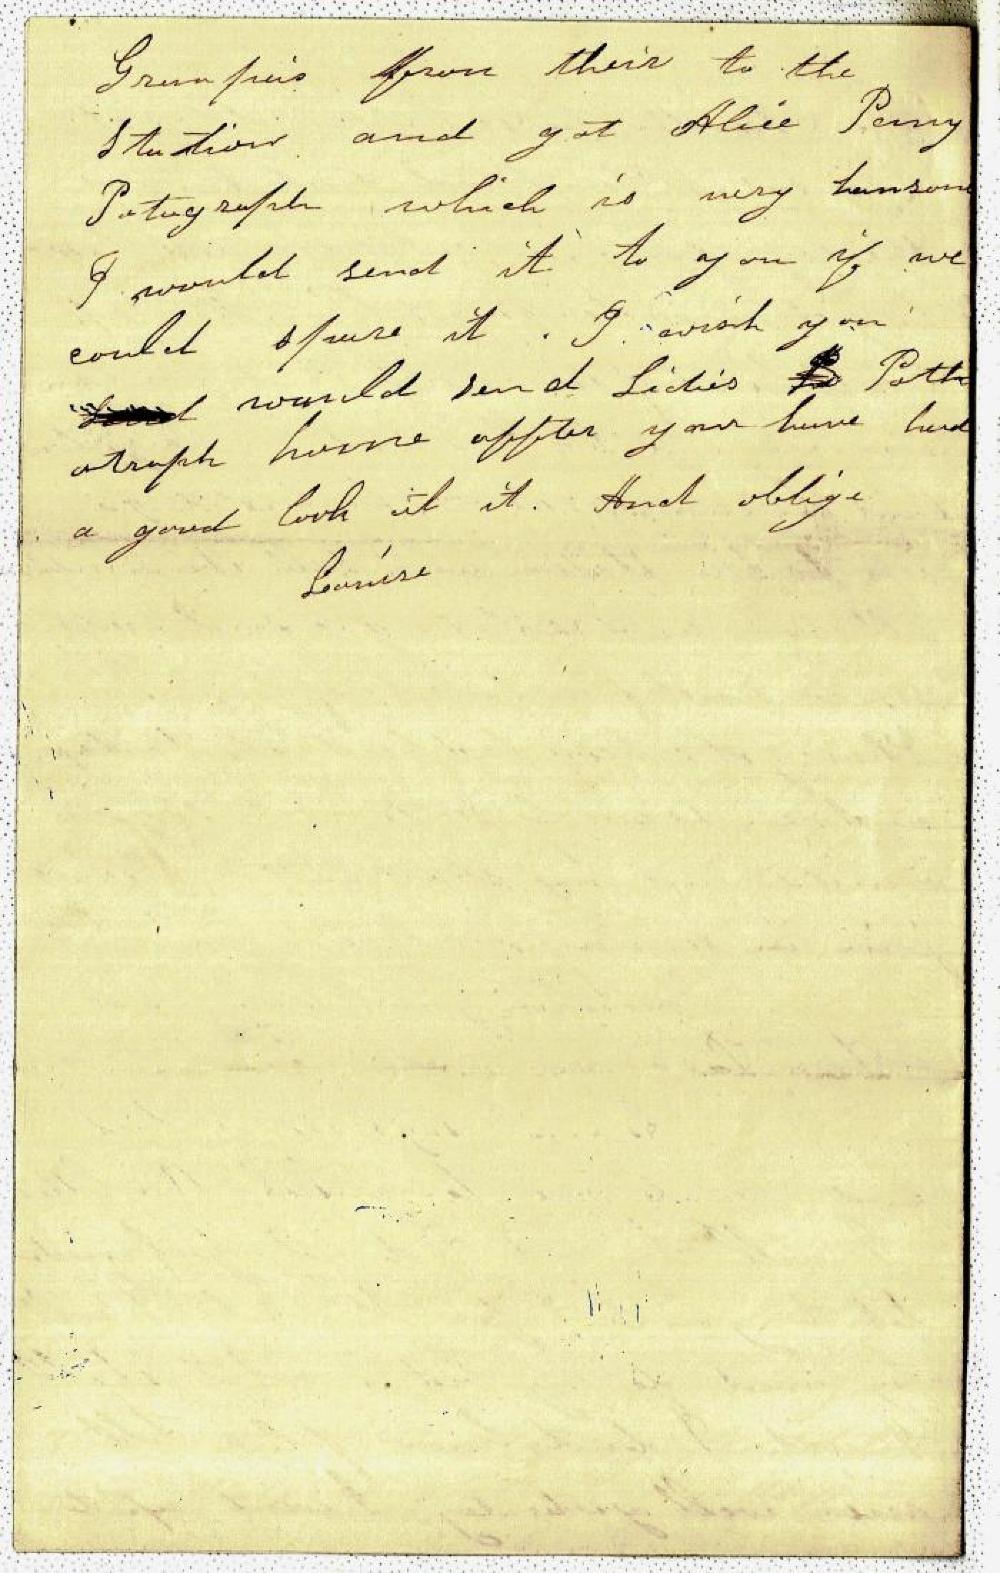 Grumpies from their to the
Station and got Alice Perry
Potugraph which is very hansome
I would send it to you if we
could spare it . I wish you
would send Lidies Poth
otraph home affter your have had
a good look at it. And oblige
Louise